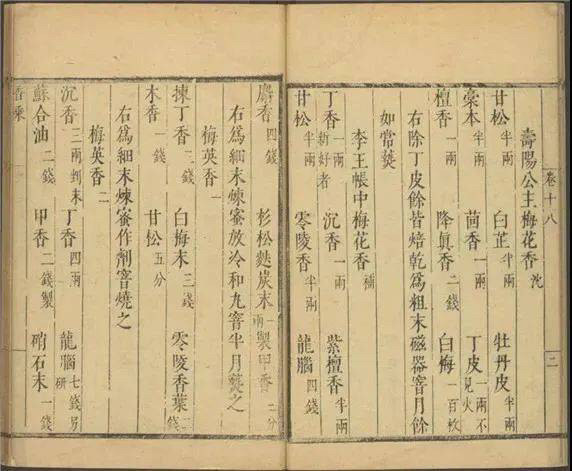 卷十八 二
壽陽公主梅花香 沈
甘松 半兩 白芷 半兩 牡丹皮 半兩
藁本 半兩 茴香 一兩 丁皮 一兩不見火
檀香 一兩 降眞香 二錢 白梅 一百枚
右除丁皮餘皆焙乾爲粗末磁器窨月餘
如常爇
李王帳中梅花香 補
丁香 一兩新好者 沉香 一兩 紫檀香 半兩
甘松 半兩 零陵香 半兩 龍腦 四錢
麝香 四錢 杉松麩炭末 一兩 製甲香 三分
右爲細末煉蜜放冷和丸窨半月爇之
梅英香 一
揀丁香 三錢 白梅末 三錢 零陵香葉 二錢
木香 一錢 甘松 五分
右爲細末煉蜜作劑窨燒之
梅英香 二
沉香 三兩剉末 丁香 四兩 龍腦 七錢另研
蘇合油 二錢 甲香 二錢製 硝石末 一錢
香乘